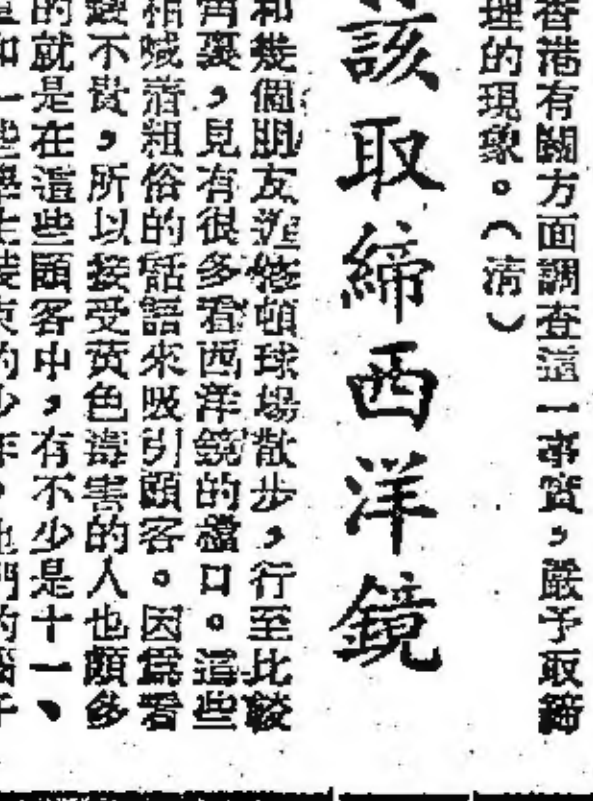 香港有關方面調查這一事實，嚴予取締
理的現象。（清）
該取締西洋鏡
和幾個朋友逛修頓球場散步，行至比較
角裏，見有很多看西洋鏡的檔口。這些
相喊着粗俗的話語來吸引顧客。因為看
錢不貴，所以接受黃色毒害的人也頗多
的就是在這些顧客中，有不少是十一、
一些學生裝束的少年，他們的